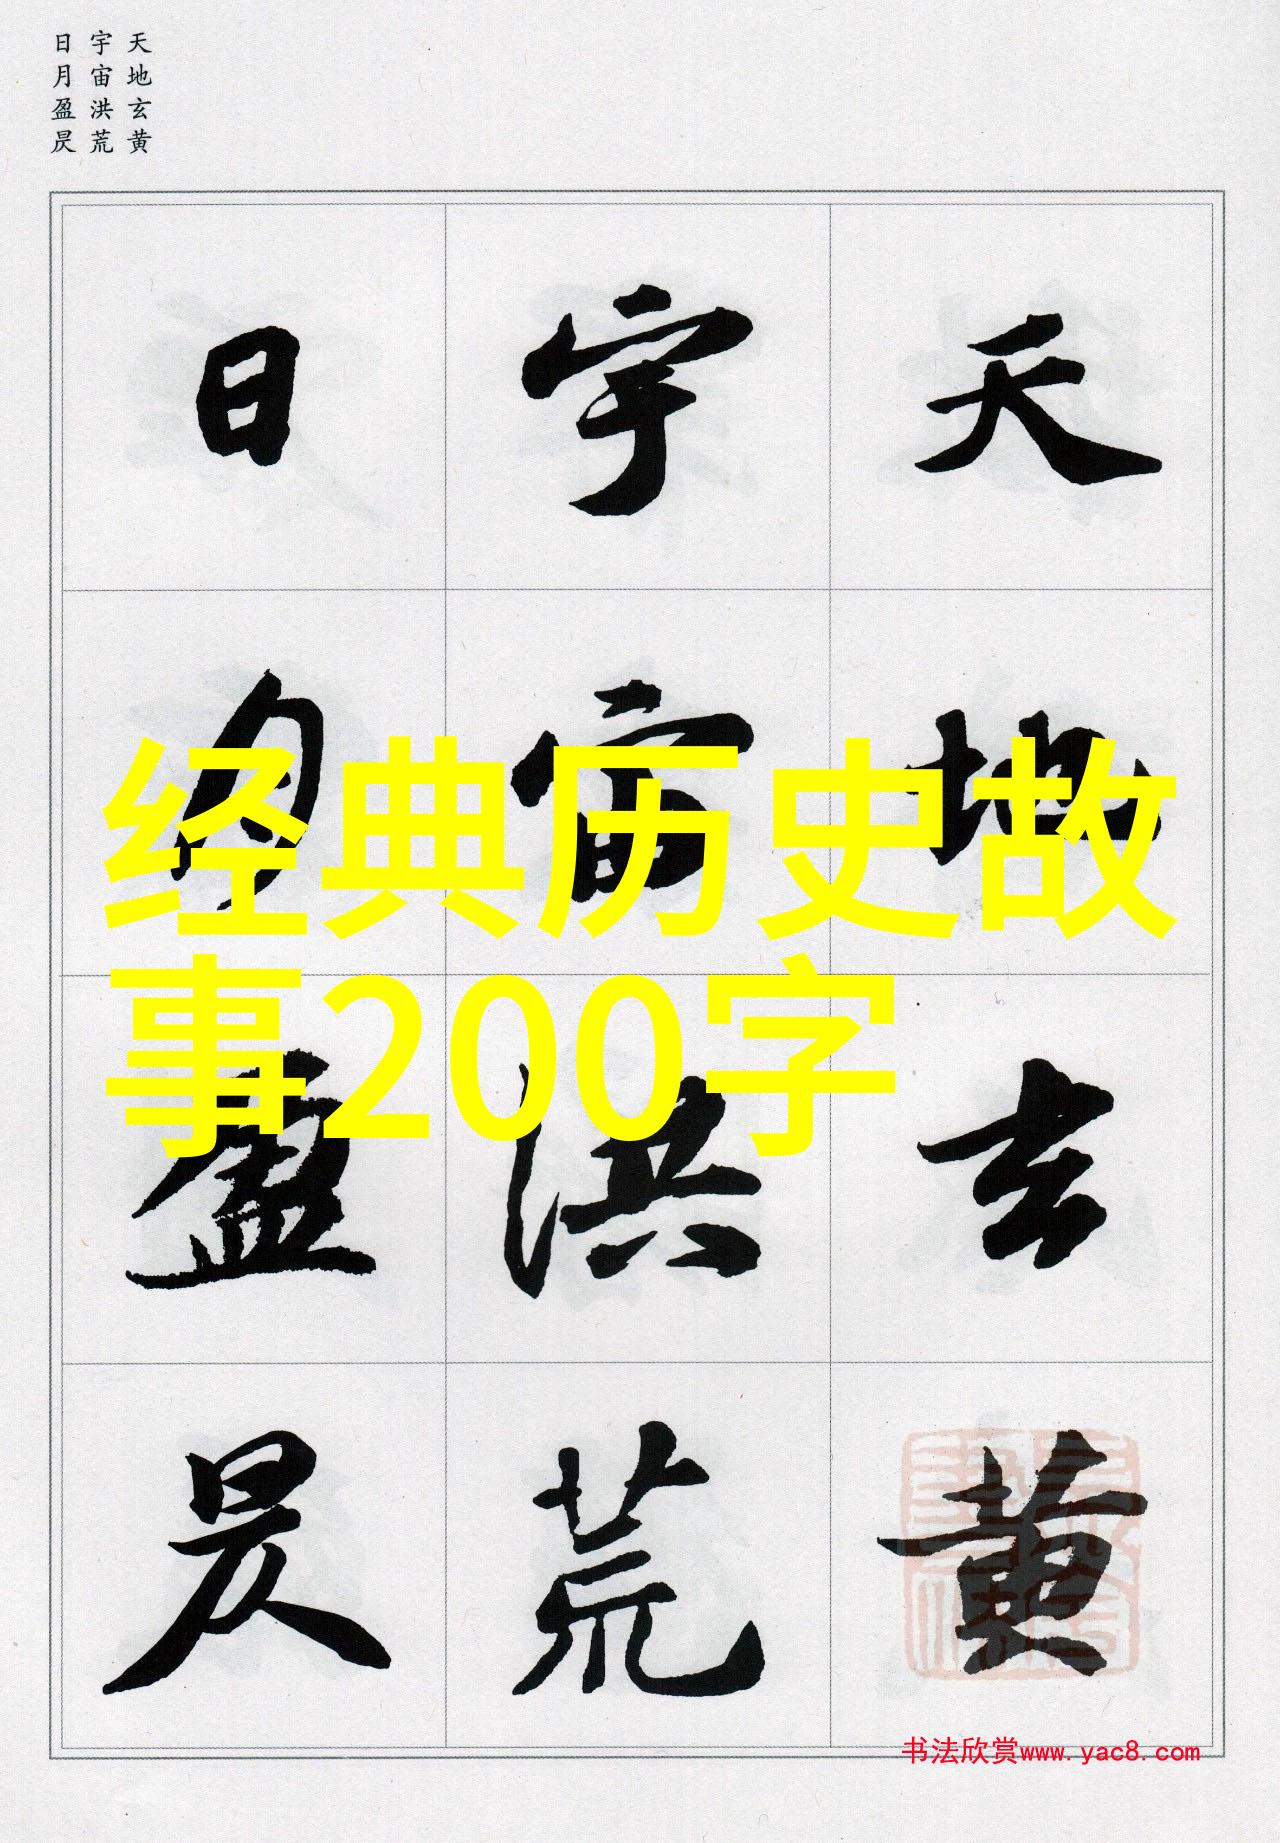 天地玄黄
宇宙洪荒
日月盈昃
天地玄黄
宇宙洪荒
日月盈昃
经典历史故
事200字
书法欣赏www.yac8.com